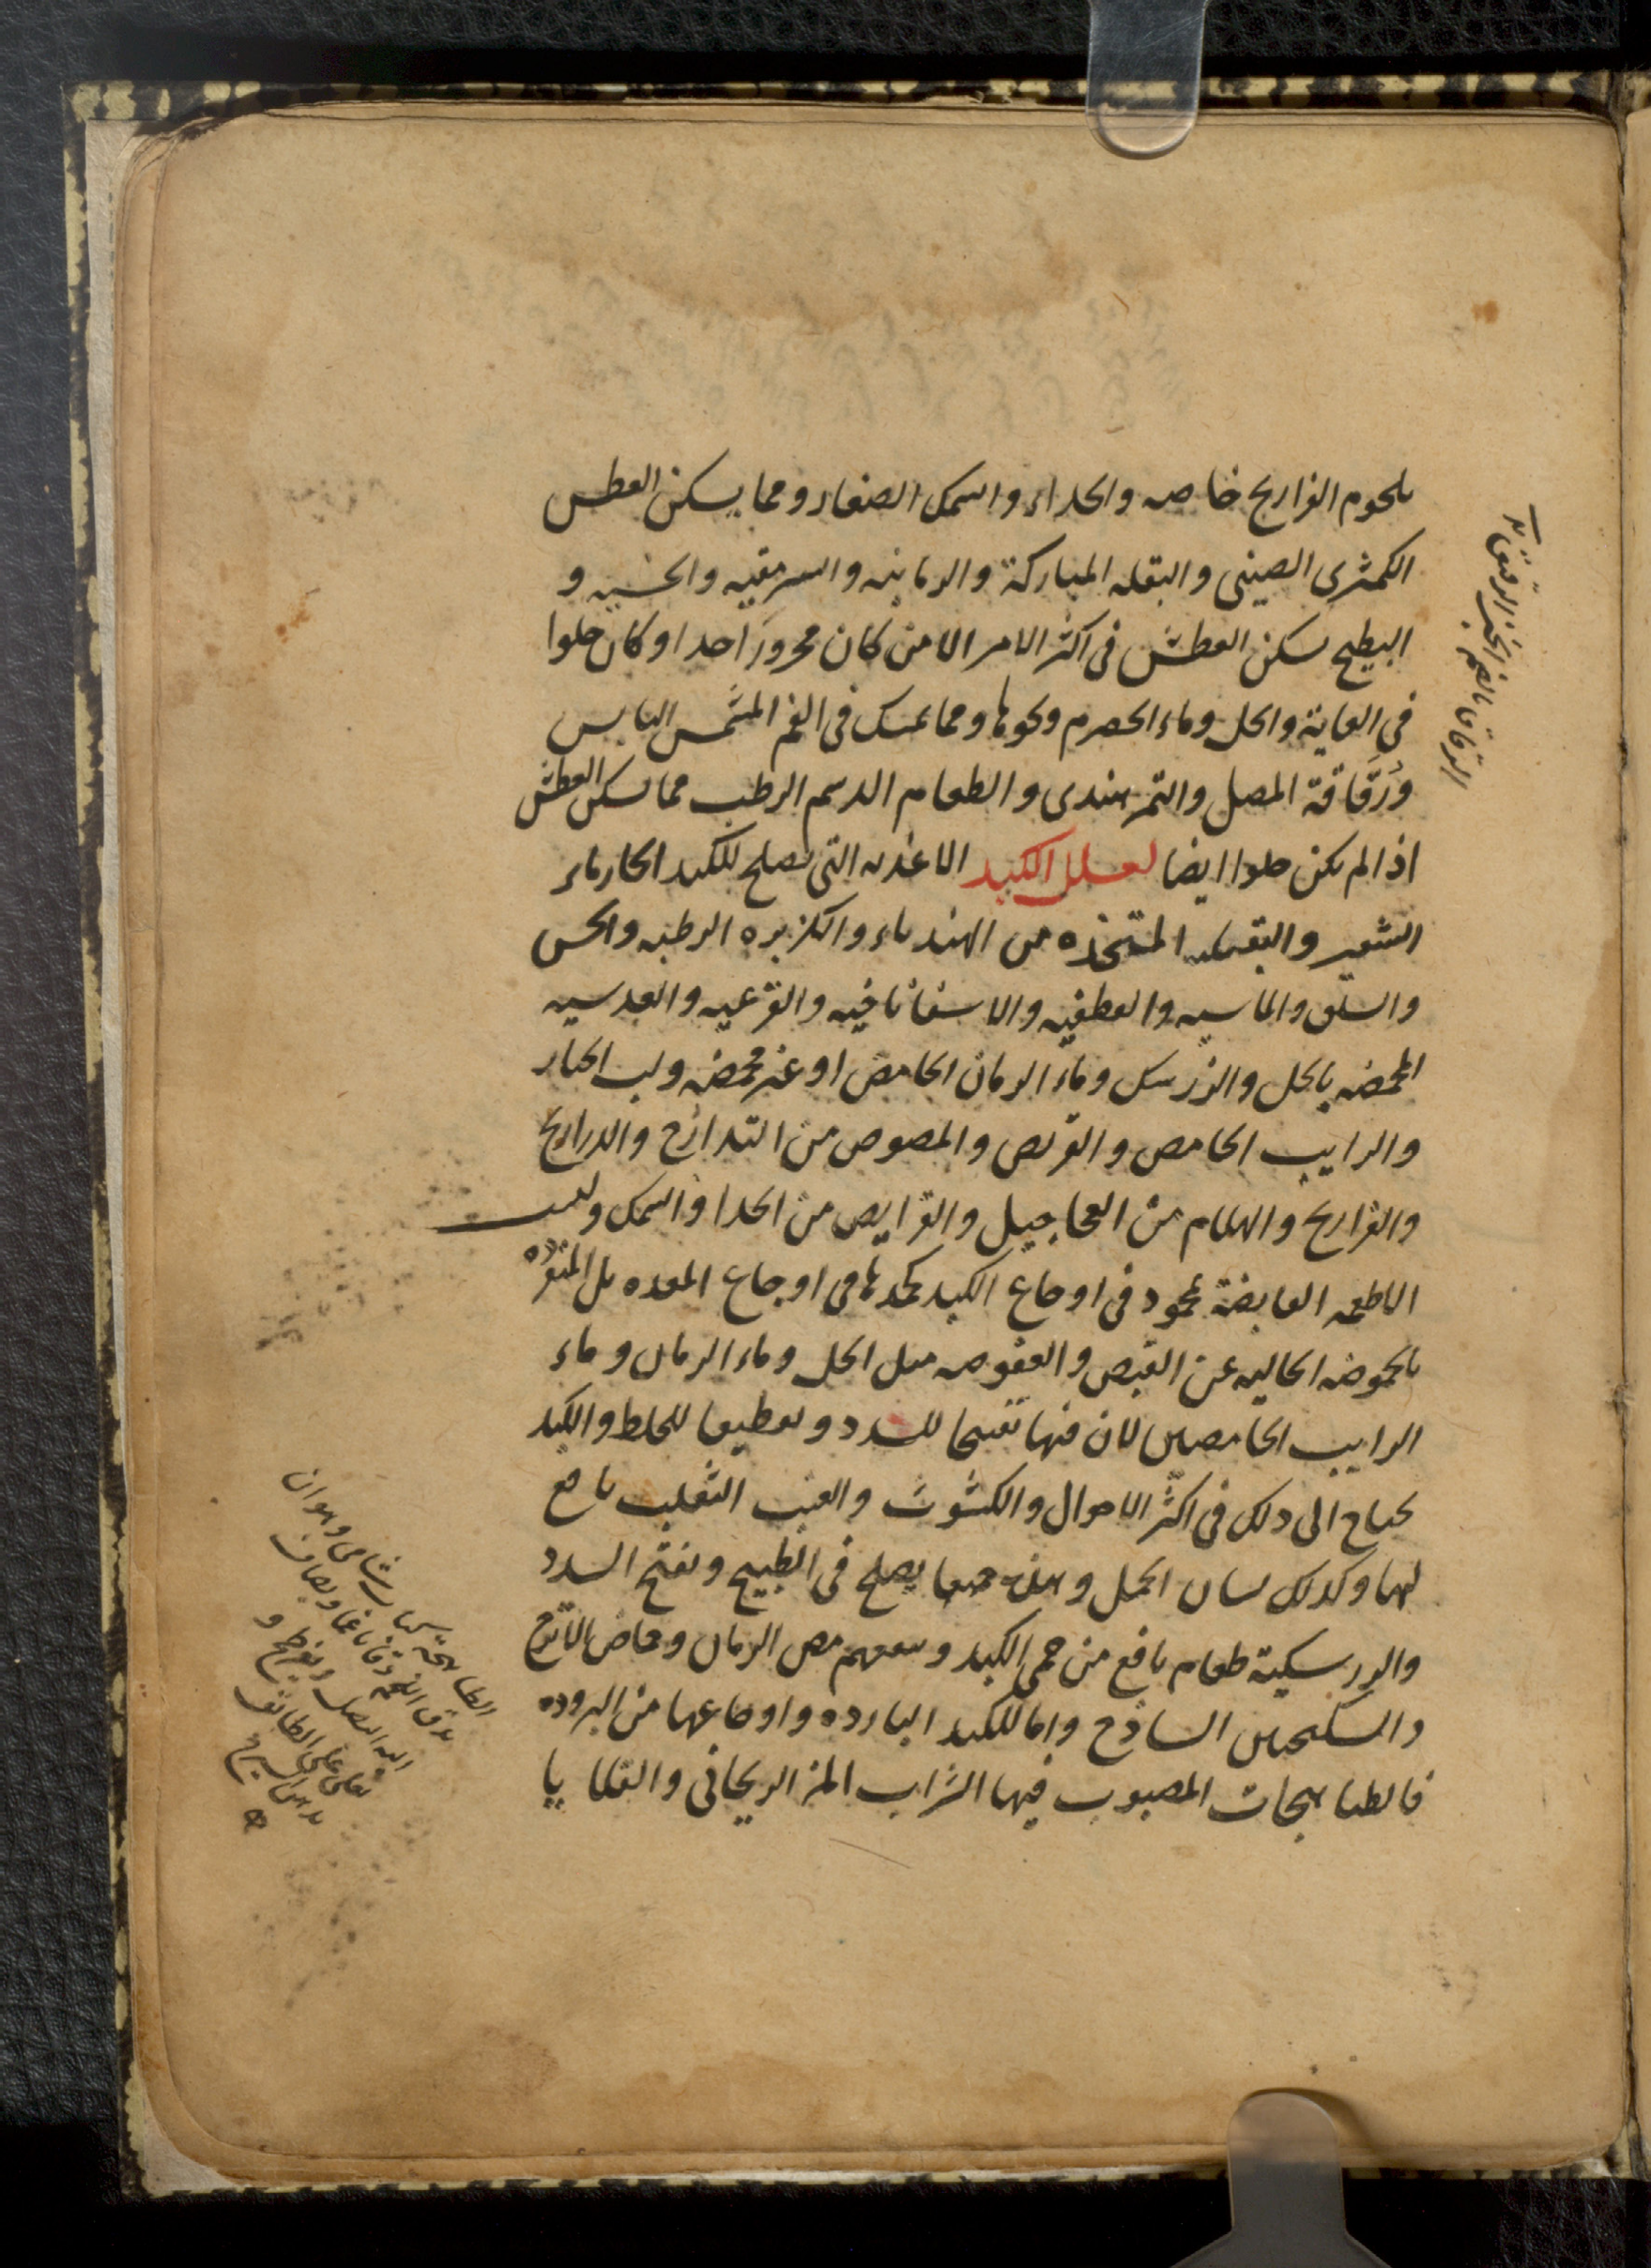 بلحوم الفراريج خاصه والجداء والسمك الصغار ومما يسكن العطس
الكمثرى الصينى والبقله المباركة والرمانيه والسرمقيه والخسيه و
البطيخ يسكن العطش فى اكثر الامر الا من كان محرورا جدا او كان حلوا
فى الغاية والخل وماء الحصرم ونحوها ومما يمسك فى الفم المشمس اليابس
ورُقَاقة المصل والتمر هندى والطعام الدسم الرطب مما يسكن العطش
اذا لم يكن حلوا ايضا لعلل الكبد الاغذيه التى تصلح للكبد الحار ماء
الشعير والبقليه المتخذه من الهندباء والكزبره الرطبه والخس
والسلق والماسيه والقطفيه والاسفاناخيه والقرعيه والعدسيه
المحمضه بالخل والزرشك وماء الرمان الحامض او غير محمضه ولب الخيار
والرايب الحامص والقريص والمصوص من التدارج والدراريج
والفراريج والهلام من العجاجيل والقرايص من الجدا والسمك وليست
الاطعمه القابضة بمحمود فى اوجاع الكبد كحمدها فى اوجاع المعده بل المتفرده
بالحموضه الخاليه عن القبص والعفوصه مثل الخل وماء الرمان وماء
الرايب الحامضين لان فيها تفتيحا للسدد وتقطيعا للخلط والكبد
تحتاج الى ذلك فى اكثر الاحوال والكشوث والعنب الثعلب نافع
لهما وكذلك لسان الحمل وهذه جميعا يصلح فى الطبيخ وتفتح السدد
والزرسكية طعام نافع من حمى الكبد وينفعهم مص الرمان وحماض الاترج
والسكنجبين الساذج واما للكبد البارده واوجاعها من البروده
فالطباهجات المصبوب فيها الشراب المز الريحانى والقلايا
الرقاق بالضم الخبز الرقيق
الطباهجة كباب شامى وهوان
يدق اللحم دقا ناعما ويضاف
اليه البصل ويفرطح و
يقلى على الطابق
بدهن السيرج